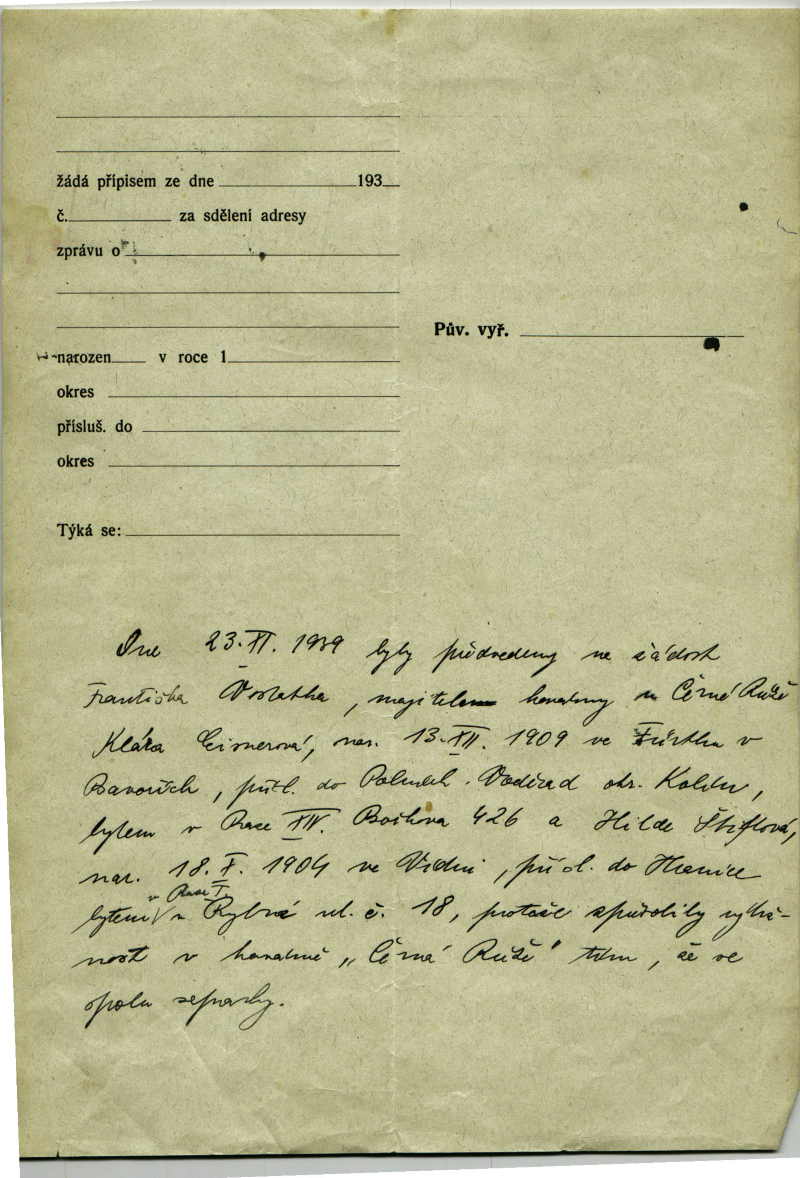 žádá přípisem ze dne 193
č. za sdělení adresy
zprávu o
Pův. vyř.
narozen v roce 1
okres
přísluš. do
okres
Týká se:
Dne 23. XI. 1939 byly předvedeny na žádost
Františka , majitele kavárny u Černé Růže
Klára Eisnerová, nar. 13. XII. 1909 ve Fürthu v
Bavořích, přísl. do okr. Kolín,
bytem v Praze XIV. 426 a Hilde
nar. 18. X. 1904 ve Vídni, přísl. do Hranice
v Praze I.
bytem v Rybné ul. č. 18, protože způsobily výtrž-
nost v kavárně „Černá Růže" tím, že se
spolu sepraly.